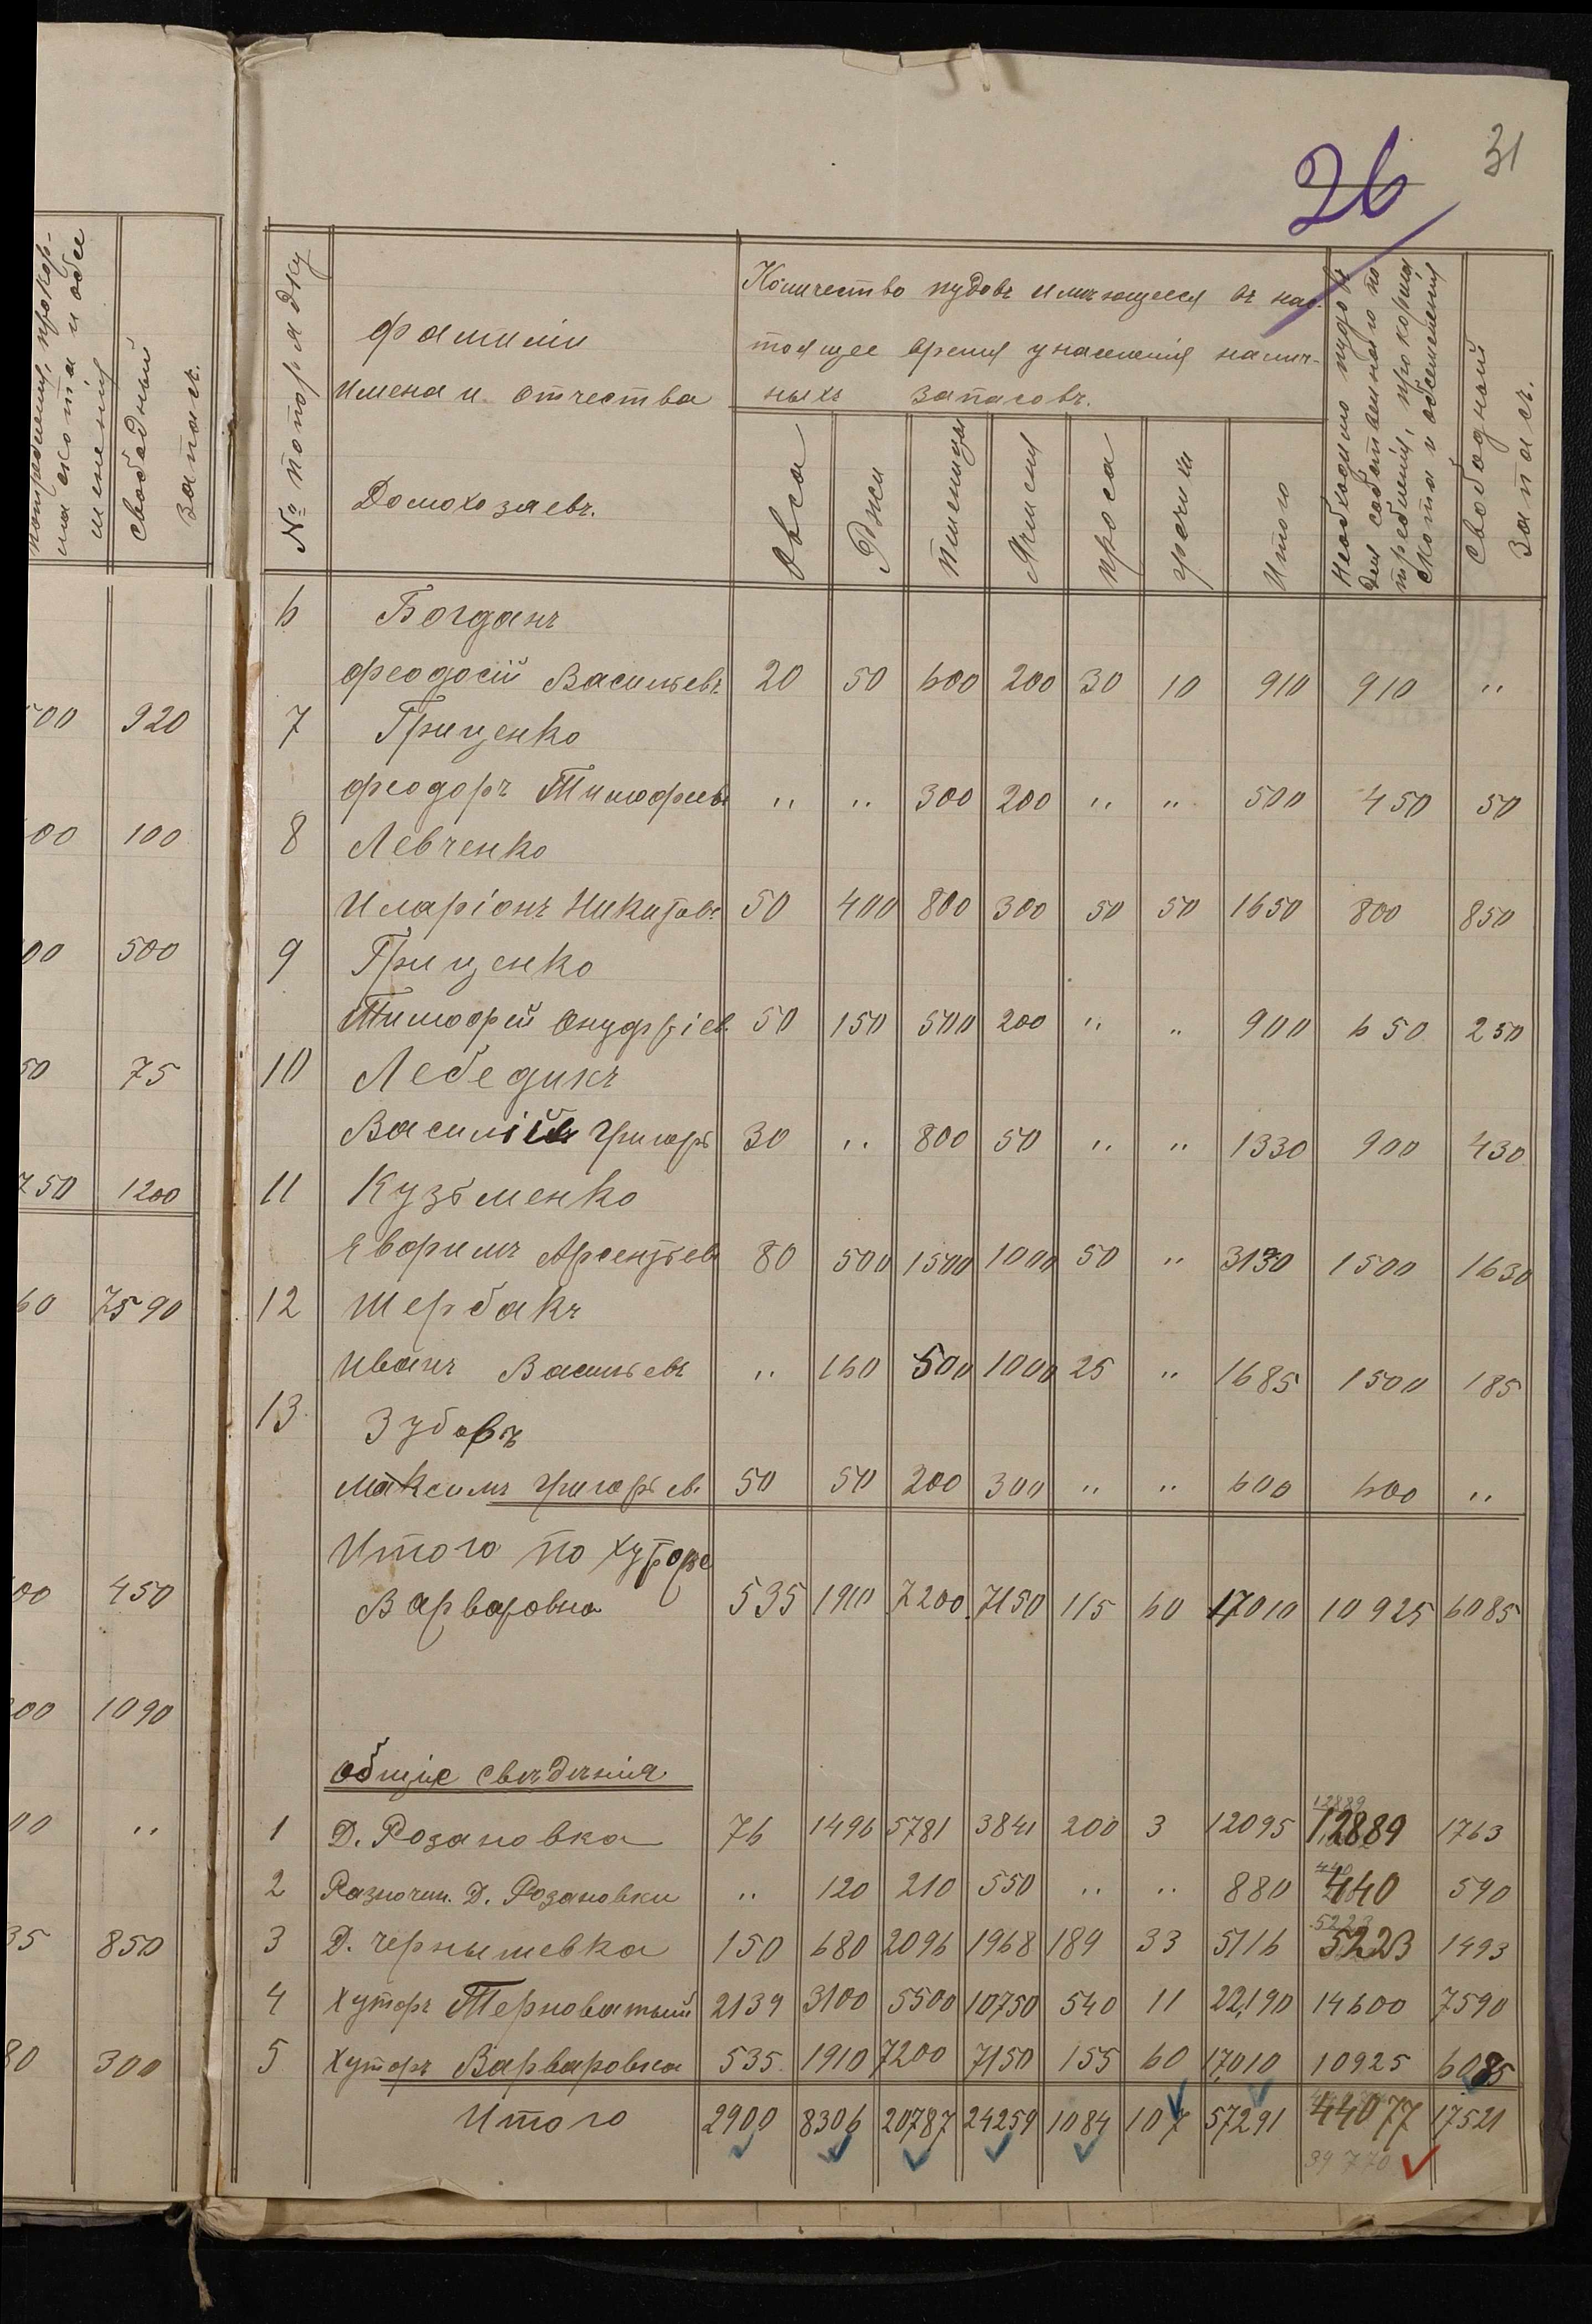 26
31
потребленія, прокор-
ма скота и обсе
мененія
свободный
запасъ.
500 920
00 100
00 500
50 75
750 1200
60 7590
00 450
00 1090
00 "
35 850
80 300
№ по порядку
фамиліи
имена и отчества
Домохозяевъ.
Количество пудовъ имѣющееся въ нас-
тоящее время у населенія налич-
ныхъ запасовъ.
Овса
Ржи
Пшеницы
Ячменя
проса
гречихи
Итого
Необходимо пудовъ
для собственнаго по
требленія, прокормія
скота и обсемененія
Свободный
Запасъ.
6 Богданъ
Феодосій Васильевъ 20 50 600 200 30 10 910 910 "
7 Грищенко
Феодоръ Тимофеевъ " " 300 200 " " 500 450 50
8 Левченко
Иларіонъ Никитовъ 50 400 800 300 50 50 1650 800 850
9 Грищенко
Тимофей Онуфріев. 50 150 500 200 " " 900 650 250
10 Лебедикъ
Василій Григорь 30 " 800 50 " " 1330 900 430
11 Кузьменко
Евфимъ Арсентьевъ 80 500 1500 1000 50 " 3130 1500 1630
12 Шербакъ
Иванъ Васильевъ " 160 500 1000 25 " 1685 1500 185
13 Зубовъ
Максимъ Григорьев. 50 50 200 300 " " 600 600 "
Итого по хуторе
Варваровка 535 1910 7200 7150 115 60 17010 10925 6085
Общіе сведенія
12889
1 Д. Розановка 76 1496 5781 3841 200 3 12095 12889 1763
440
2 Разночин. Д. Розановки " 120 210 550 " " 880 440 590
5223
3 Д. Чернышевка 150 680 2096 1968 189 33 5116 5223 1493
4 Хуторъ Терноватый 2139 3100 5500 10750 540 11 22190 14600 7590
5 Хуторъ Варваровка 535 1910 7200 7150 155 60 17010 10925 6085
Итого 2900 8306 20787 24259 1084 107 57291 44077 17521
39770